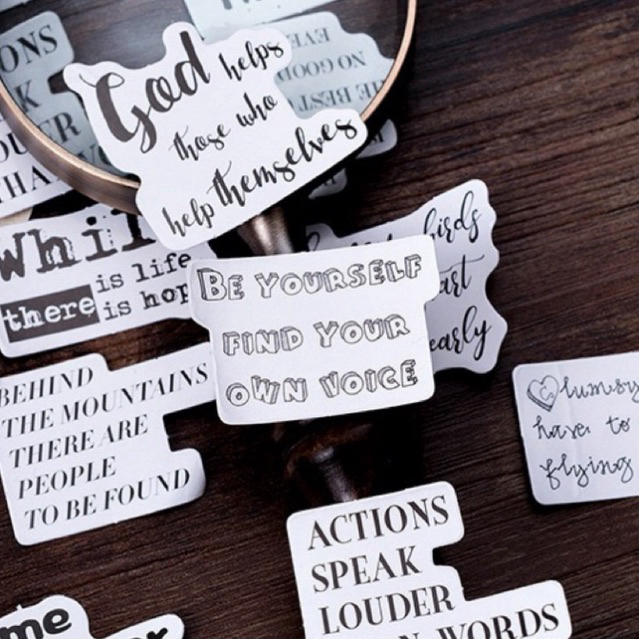 ONS
EVE
NO GOOD
THE BEST
God helps
those who
help themselves
is life
there is hop
birds
art
early
BE YOURSELF
FIND YOUR
OWN VOICE
BEHIND
THE MOUNTAINS
THERE ARE
PEOPLE
TO BE FOUND
have to
flying
ACTIONS
SPEAK
LOUDER
WORDS
me